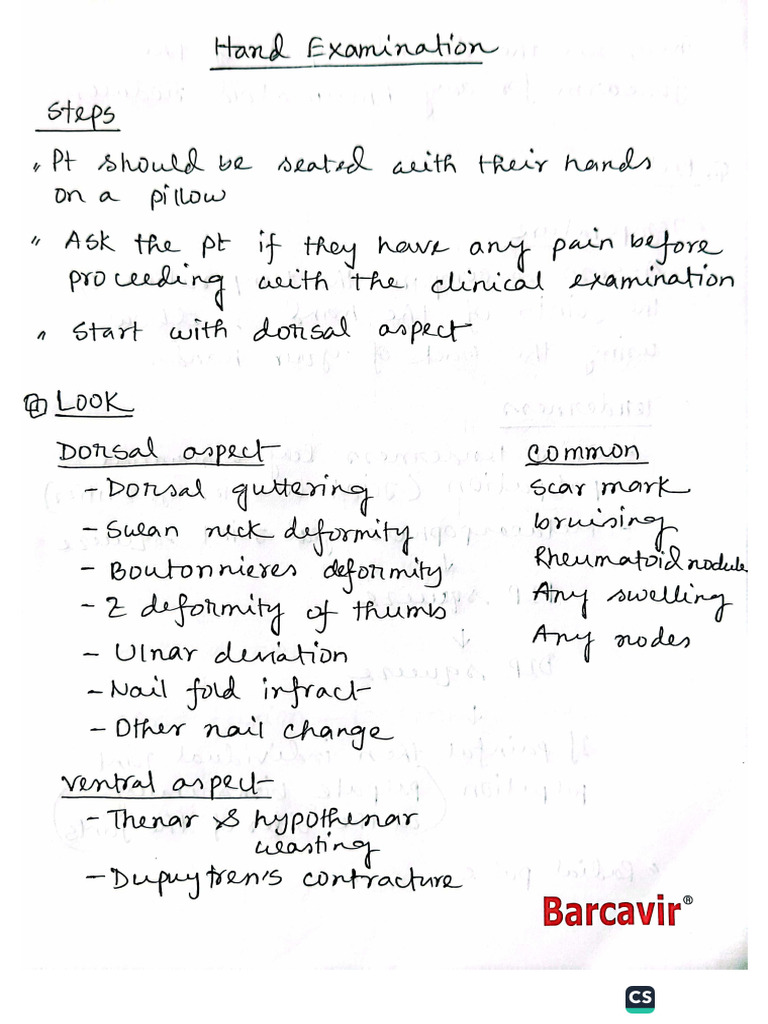 Hand Examination
Steps
" Pt should be seated with their hands
on a pillow
" Ask the pt if they have any pain before
proceeding with the clinical examination
" Start with dorsal aspect
LOOK
Dorsal aspect
- Dorsal guttering
- Swan neck deformity
- Boutonnieres deformity
- Z deformity of thumb
- Ulnar deviation
- Nail fold infract
- Other nail change
Common
Scar mark
bruising
Rheumatoid nodule
Any swelling
Any nodes
Ventral aspect
- Thenar & hypothenar
wasting
- Dupuytren's contracture
Barcavir®
CS